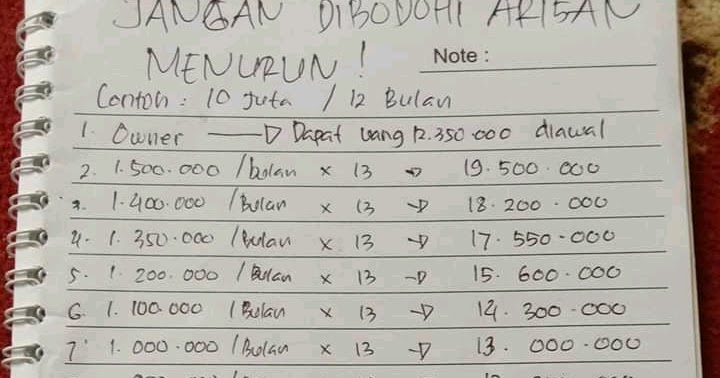 JANGAN DIBODOHI ARISAN
MENURUN!
Note :
Contoh : 10 Juta / 12 Bulan
1. Owner → Dapat uang 12.350.000 diawal
2. 1.500.000 /bulan x 13 → 19.500.000
3. 1.400.000 /Bulan x 13 → 18.200.000
4. 1.350.000 /Bulan x 13 → 17.550.000
5. 1.200.000 /Bulan x 13 → 15.600.000
6. 1.100.000 /Bulan x 13 → 14.300.000
7. 1.000.000 /Bulan x 13 → 13.000.000